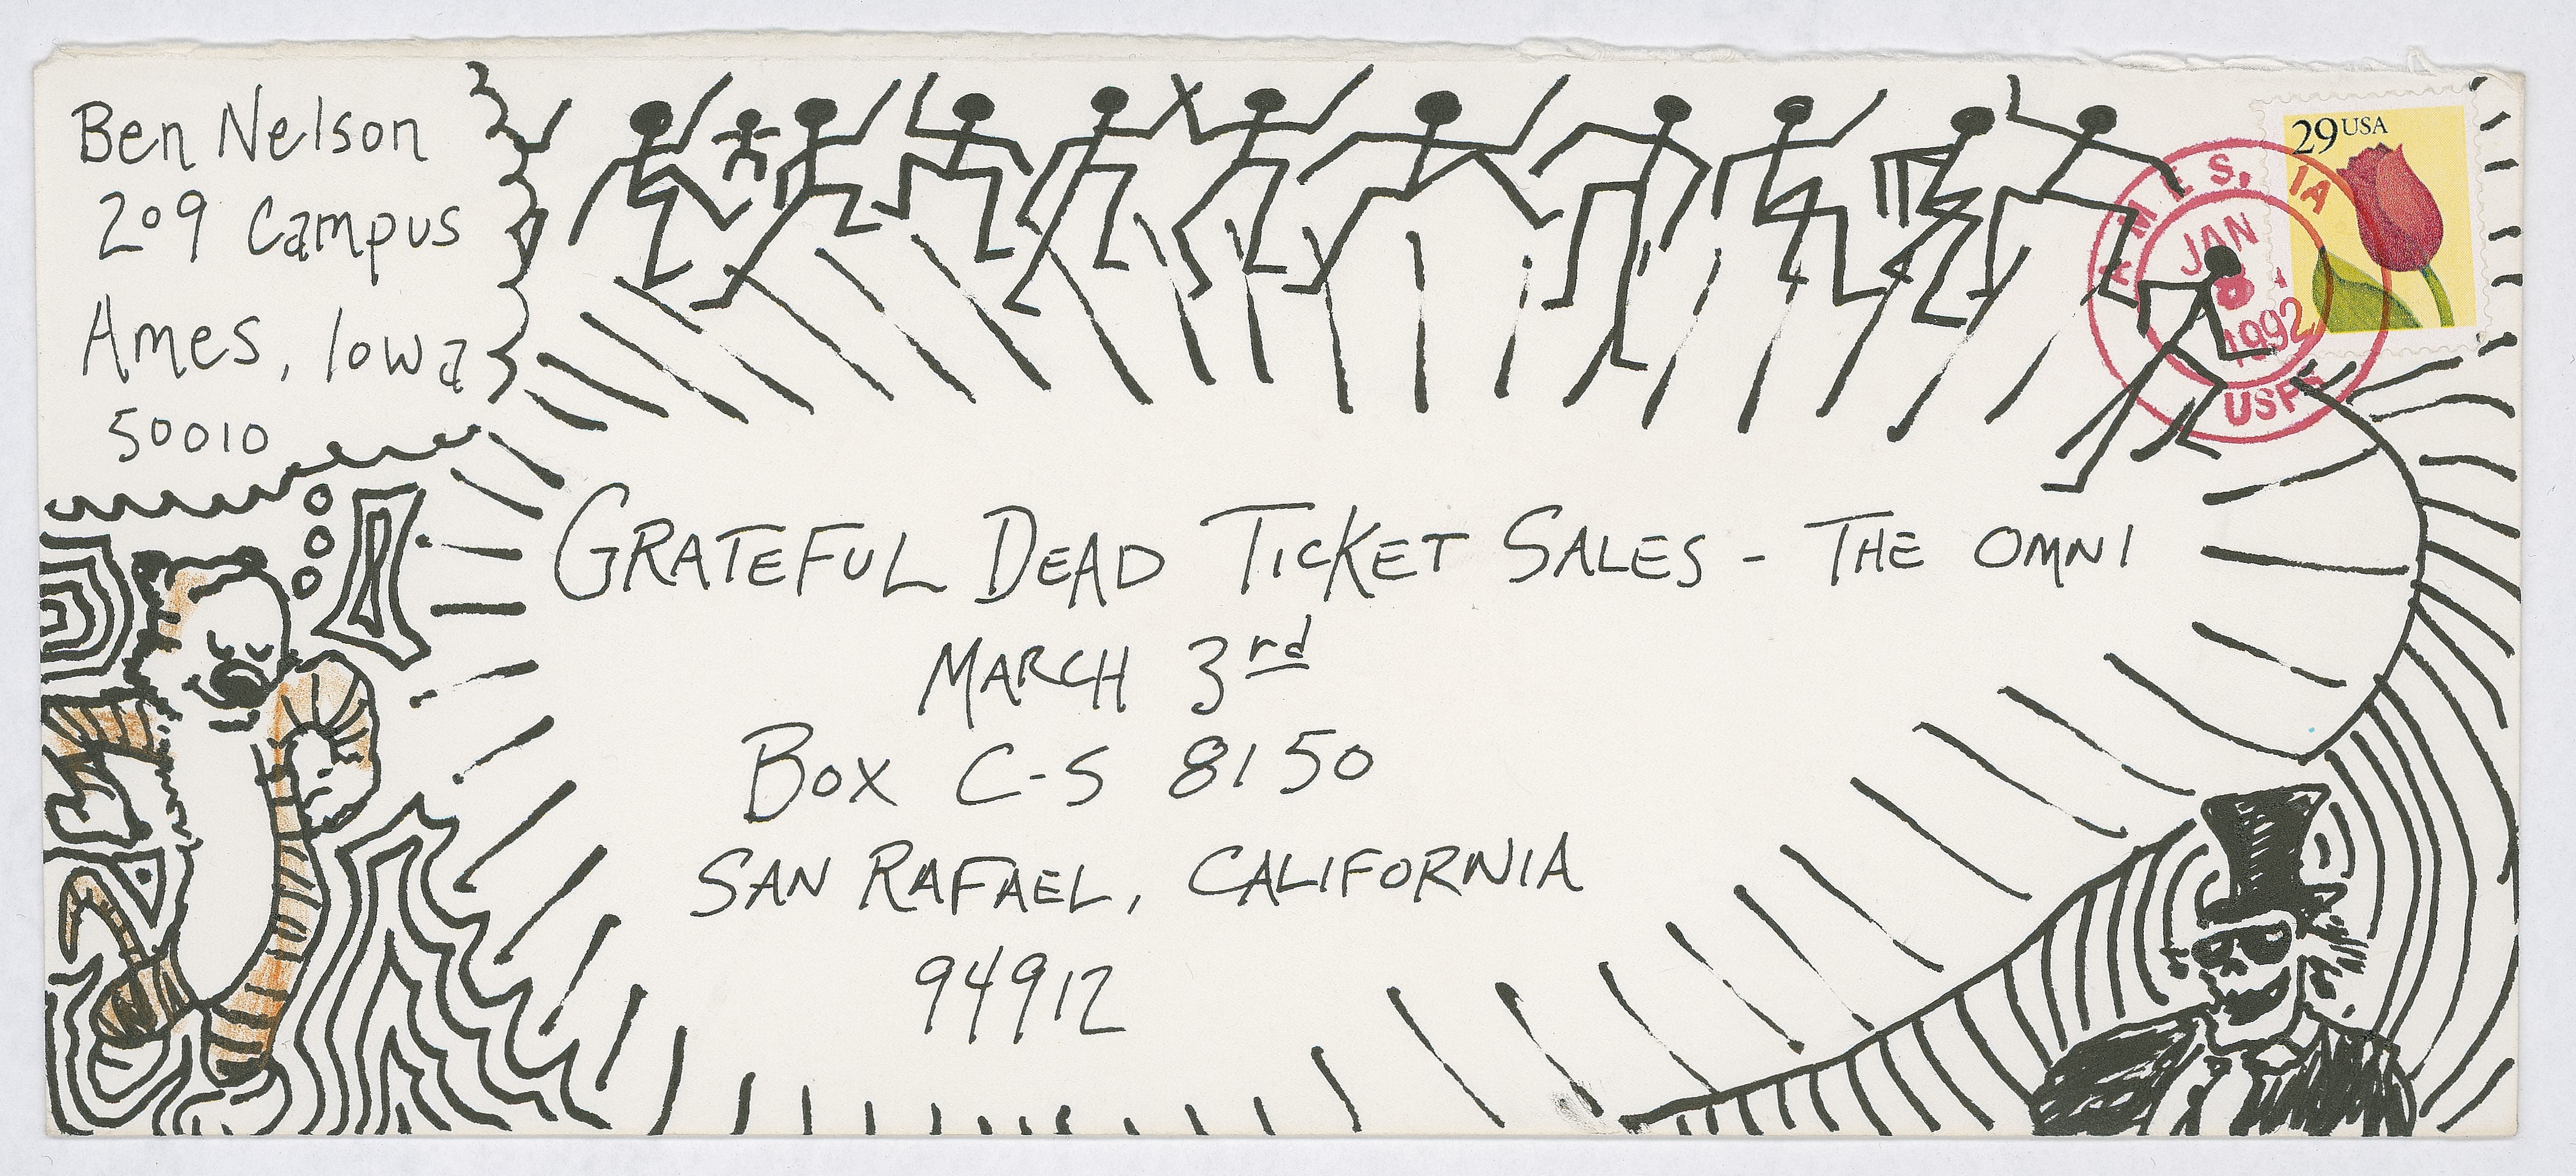 Ben Nelson
209 Campus
Ames, Iowa
50010
29 USA
AMES, IA
JAN
1992
USPS
GRATEFUL DEAD TICKET SALES - THE OMNI
MARCH 3rd
BOX C-S 8150
SAN RAFAEL, CALIFORNIA
94912